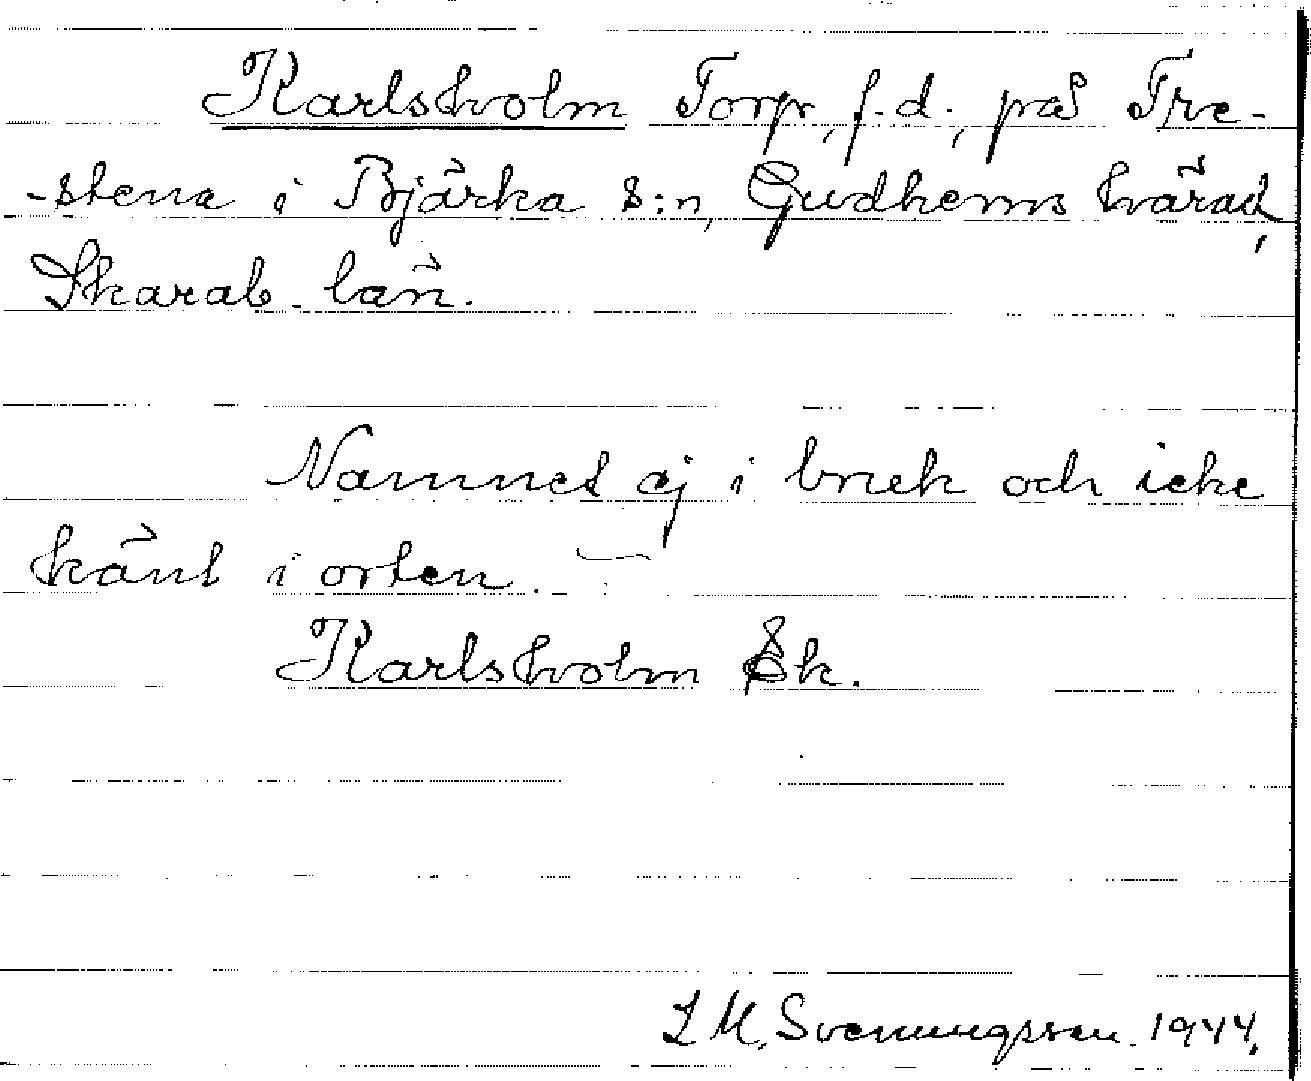 Karlsholm Torp, f.d., på Tre-
-stena i Bjärka s:n, Gudhems härad,
Skarab. län.
Namnet ej i bruk och icke
känt i orten. —
Karlsholm Ek.
L M. Svenungsson. 1944.